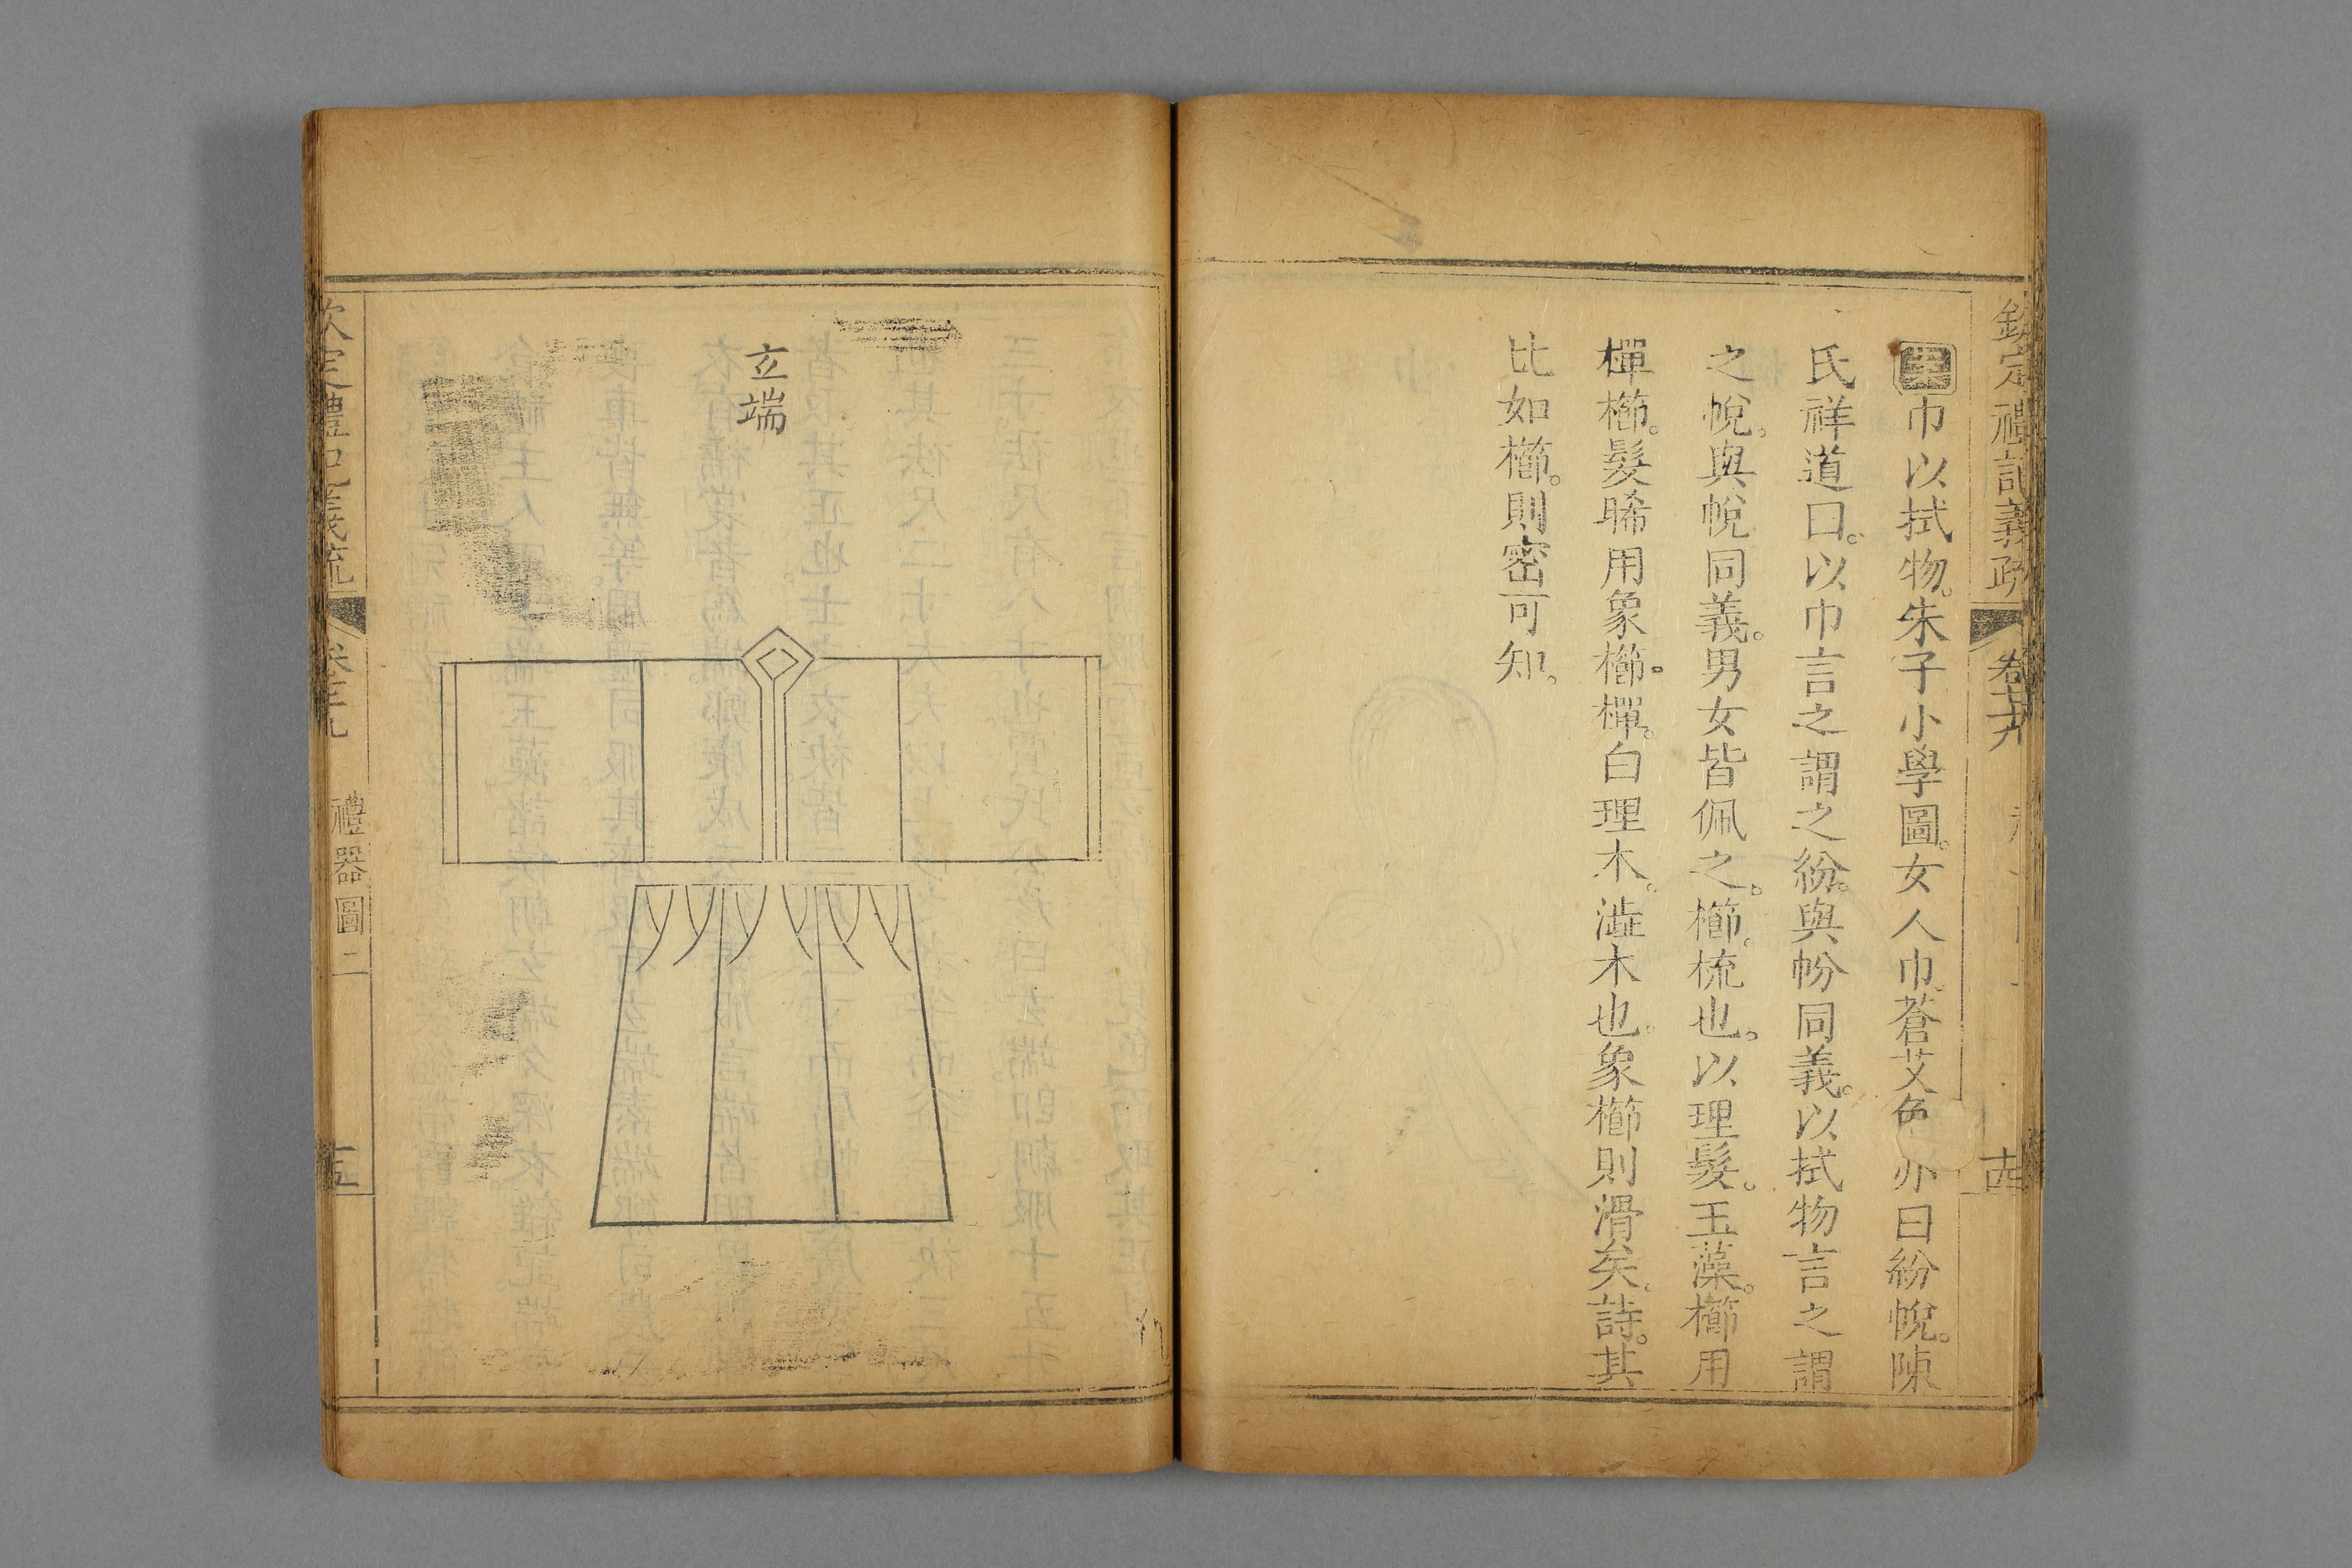 欽定禮記義疏
卷七十九
十四
巾以拭物。朱子小學圖。女人巾。蒼艾色 亦曰紛帨。陳
氏祥道曰。以巾言之謂之紛。與帉同義。以拭物言之謂
之帨。與帨同義。男女皆佩之。櫛。梳也。以理髮。玉藻。櫛用
樿櫛。髮晞用象櫛。樿。白理木。澁木也。象櫛則滑矣。詩。其
比如櫛。則密可知。
立端
欽定禮記義疏
禮器圖二